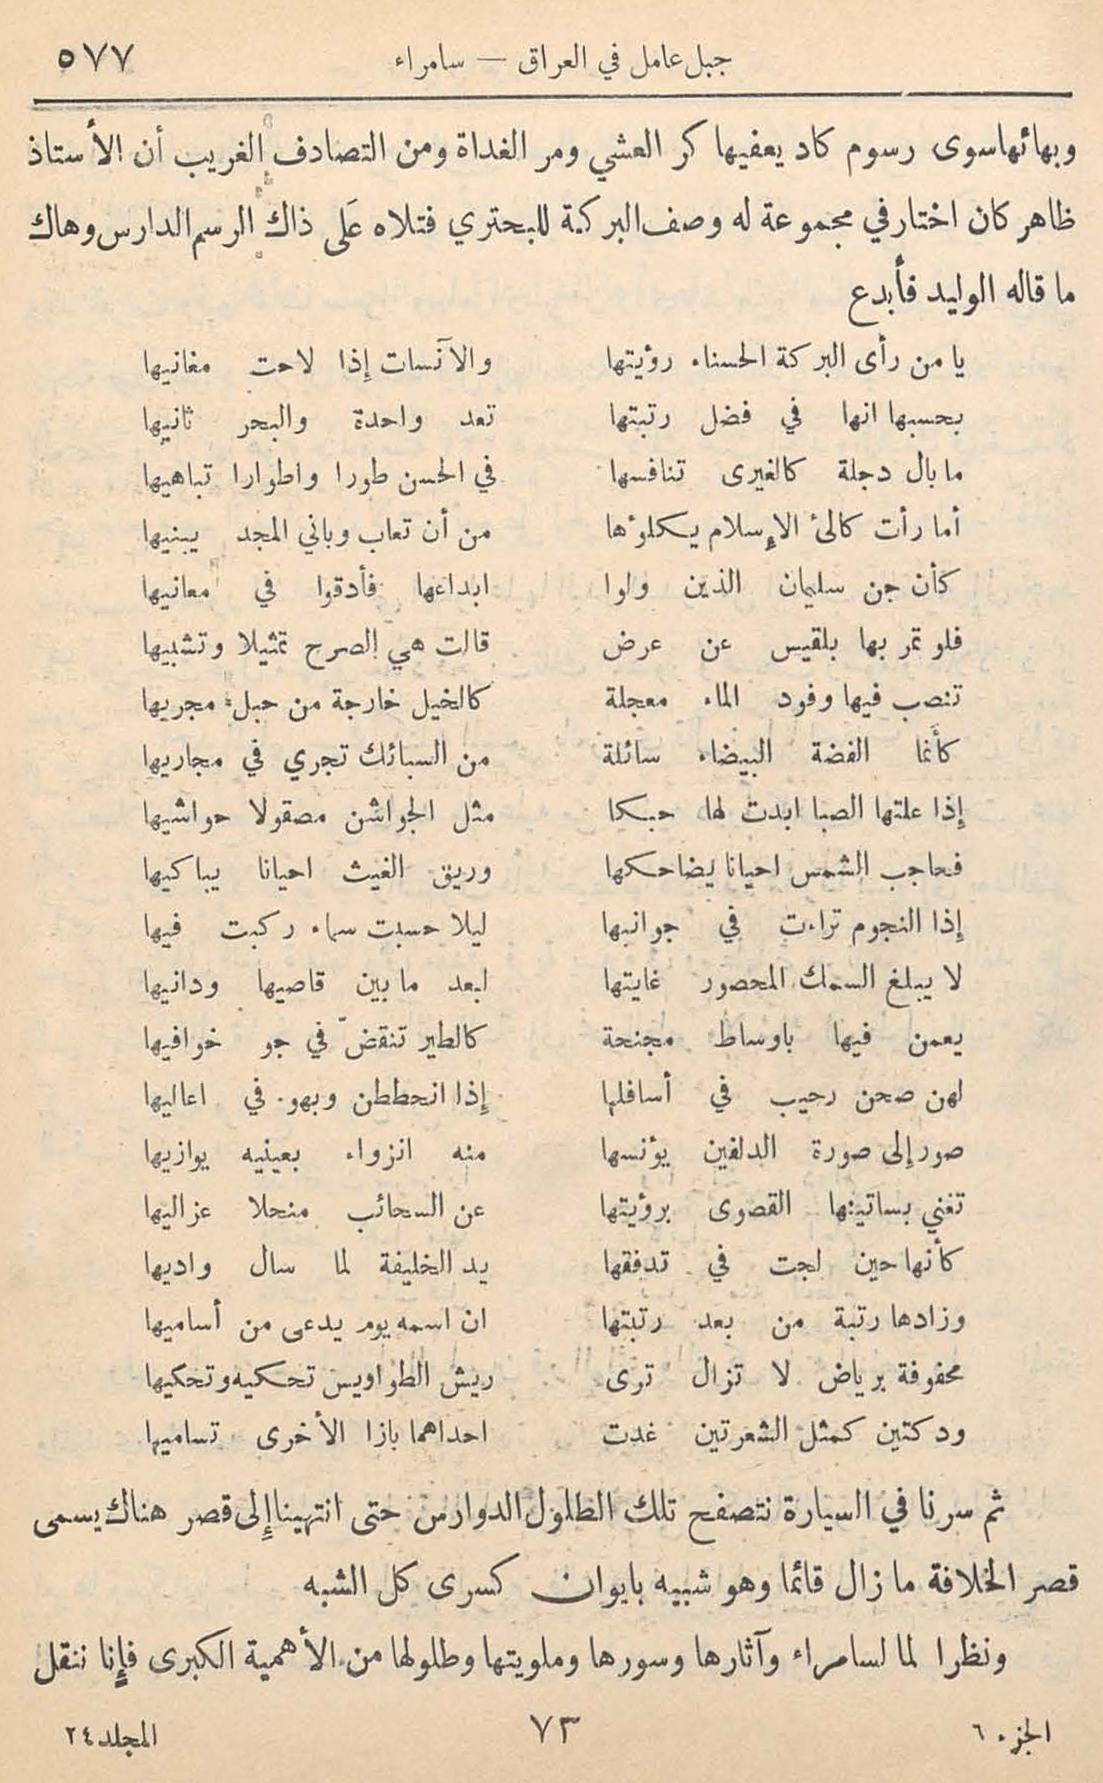 جبل عامل في العراق — سامراء ٥٧٧
وبهائها سوى رسوم كاد يعفيها كر العشي ومر الغداة ومن التصادف الغريب أن الأستاذ
ظاهر كان اختار في مجموعة له وصف البركة للبحتري فتلاه عَلَى ذاك الرسم الدارس وهاك
ما قاله الوليد فأبدع
يا من رأى البركة الحسناء رؤيتها والآنسات إذا لاحت مغانيها
بحسبها انها في فضل رتبتها تعد واحدة والبحر ثانيها
ما بال دجلة كالغيرى تنافسها في الحسن طورا واطوارا تباهيها
أما رأت كالئ الإسلام يكلؤها من أن تعاب وباني المجد يبنيها
كأن جن سليمان الذين ولوا ابداعها فأدقوا في معانيها
فلو تمر بها بلقيس عن عرض قالت هي الصرح تمثيلا وتشبيها
تنصب فيها وفود الماء معجلة كالخيل خارجة من حبل مجريها
كأنما الفضة البيضاء سائلة من السبائك تجري في مجاريها
إذا علتها الصبا ابدت لها حبكا مثل الجواشن مصقولا حواشيها
فحاجب الشمس احيانا يضاحكها وريق الغيث احيانا يباكيها
إذا النجوم تراءت في جوانبها ليلا حسبت سماء ركبت فيها
لا يبلغ السمك المحصور غايتها ابعد ما بين قاصيها ودانيها
يعمن فيها باوساط مجنحة كالطير تنقضّ في جو خوافيها
لهن صحن رحيب في أسافلها إذا انحططن وبهو في اعاليها
صور إلى صورة الدلفين يؤنسها منه انزواء بعينيه يوازيها
تغني بساتينها القصوى برؤيتها عن السحائب منحلا عزاليها
كأنها حين لجت في تدفقها يد الخليفة لما سال واديها
وزادها رتبة من بعد رتبتها ان اسمه يوم يدعى من أساميها
محفوفة برياض لا تزال ترى ريش الطواويس تحكيه وتحكيها
ودكتين كمثل الشعرتين غدت احداهما بازا الأخرى تساميها
ثم سرنا في السيارة نتصفح تلك الطلول الدوارس حتى انتهينا إلى قصر هناك يسمى
قصر الخلافة ما زال قائما وهو شبيه بايوان كسرى كل الشبه
ونظرا لما لسامراء وآثارها وسورها وملويتها وطلولها من الأهمية الكبرى فإنا ننقل
الجزء ٦ ٧٣ المجلد ٢٤